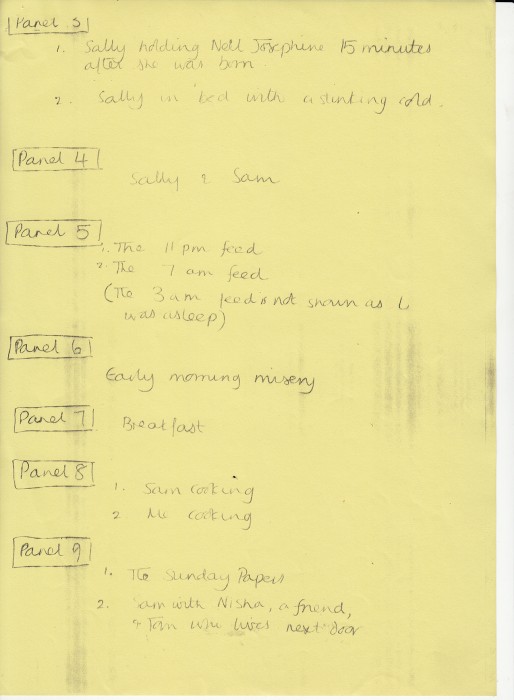 Panel 3
1. Sally holding Nell Josephine 15 minutes
after she was born.
2. Sally in bed with a stinking cold.
Panel 4
Sally & Sam
Panel 5
1. The 11 pm feed
2. The 7 am feed
(The 3 am feed is not shown as I
was asleep)
Panel 6
Early morning misery
Panel 7
Breakfast
Panel 8
1. Sam cooking
2 Me cooking
Panel 9
1. The Sunday Papers
2. Sam with Nisha, a friend,
& Tom who lives next door